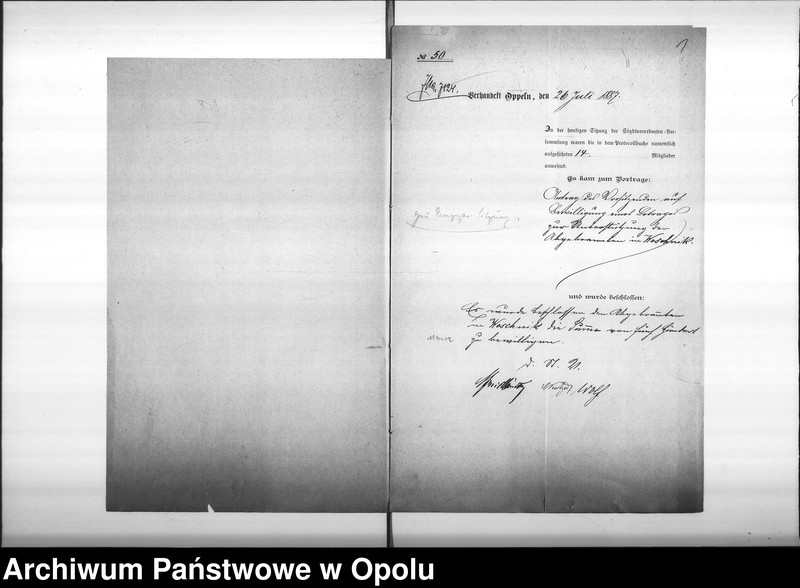 № 50
1
Verhandelt Oppeln, den 26 Juli 1887.
In der heutigen Sitzung der Stadtverordneten-Ver-
sammlung waren die in dem Protocollbuche namentlich
aufgeführten 14. Mitglieder
anwesend.
Es kam zum Vortrage:
Antrag des Vorsitzenden auf
Bewilligung eines Betrages
zur Unterstützung der
Abgebrannten in Woschnik.
und wurde beschlossen:
Es wurde beschlossen den Abgebrannten
in Woschnik die Summe von fünf Hundert
zu bewilligen.
d. St. V.
Wolf
Archiwum Państwowe w Opolu